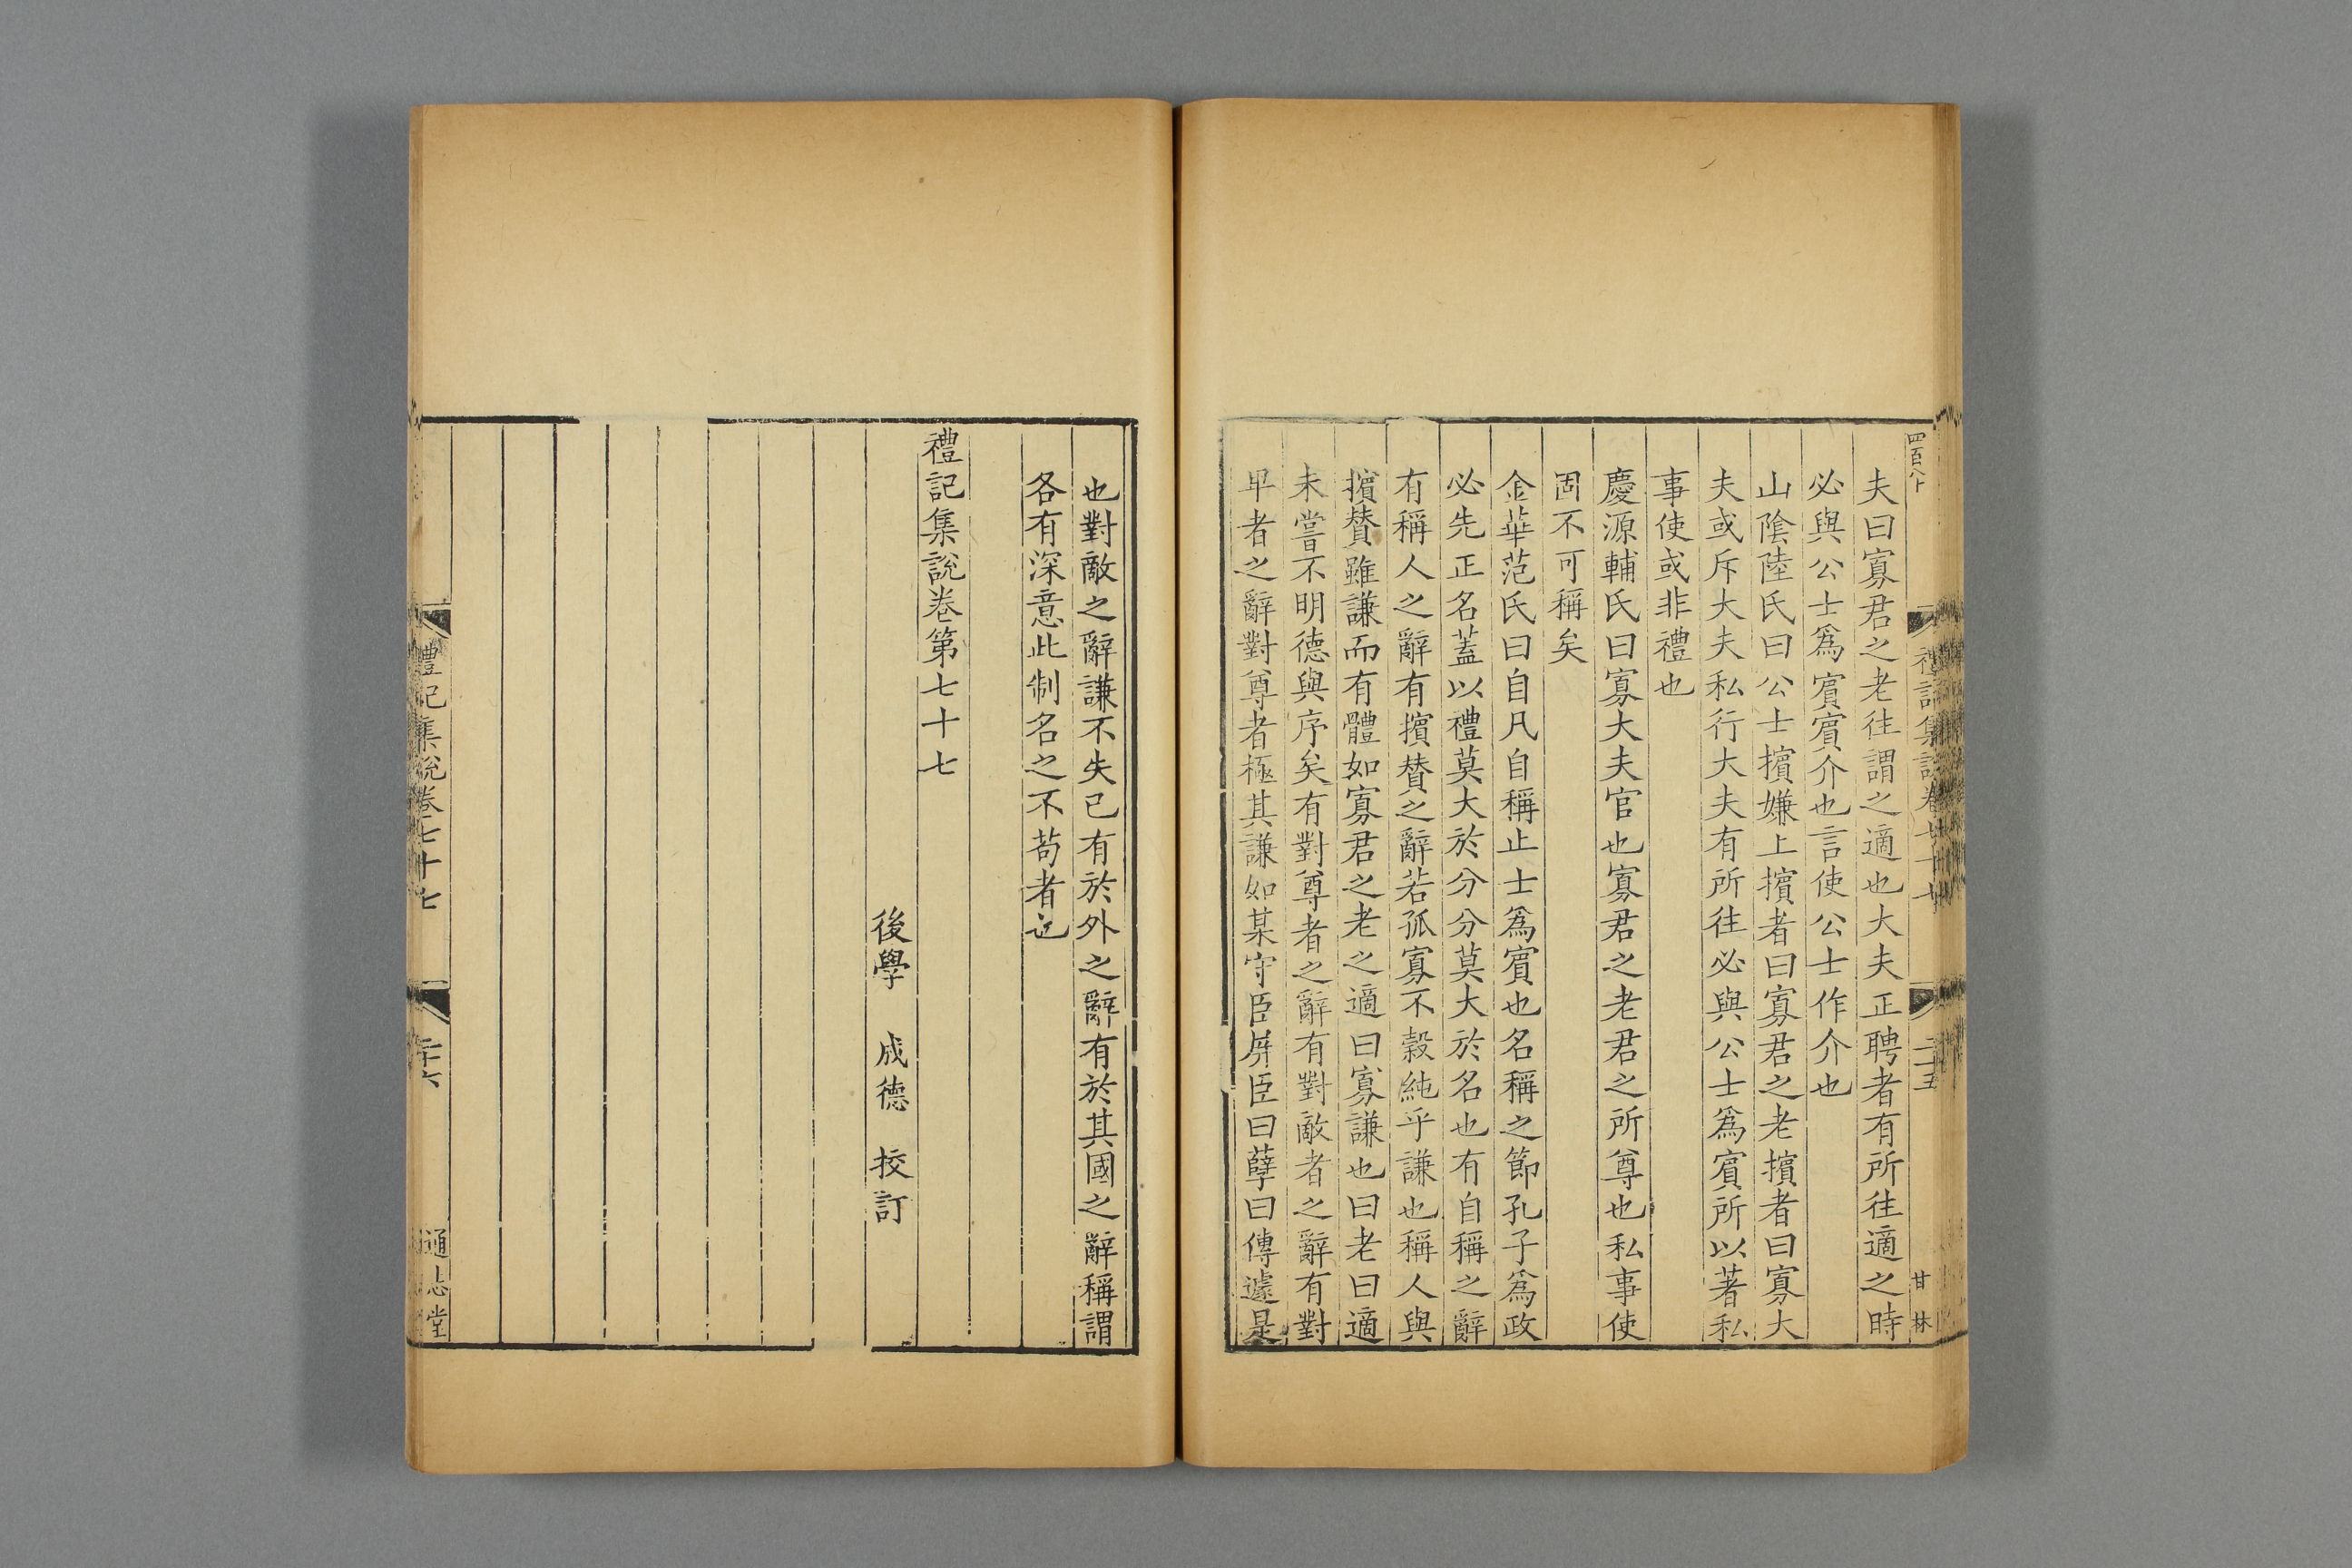 四百八十
禮記集說卷七十七
二十五
甘林
夫曰寡君之老往謂之適也大夫正聘者有所往適之時
必與公士爲賓賓介也言使公士作介也
山陰陸氏曰公士擯嫌上擯者曰寡君之老擯者曰寡大
夫或斥大夫私行大夫有所往必與公士爲賓所以著私
事使或非禮也
慶源輔氏曰寡大夫官也寡君之老君之所尊也私事使
固不可稱矣
金華范氏曰自凡自稱止士爲賓也名稱之節孔子爲政
必先正名蓋以禮莫大於分分莫大於名也有自稱之辭
有稱人之辭有擯賛之辭若孤寡不穀純乎謙也稱人與
擯賛雖謙而有體如寡君之老之適曰寡謙也曰老曰適
未嘗不明德與序矣有對尊者之辭有對敵者之辭有對
卑者之辭對尊者極其謙如某守臣屏臣曰孽曰傳遽是
也對敵之辭謙不失已有於外之辭有於其國之辭稱謂
各有深意此制名之不苟者也
禮記集說卷第七十七
後學 成德 挍訂
禮記集說卷七十七
二十六
通志堂